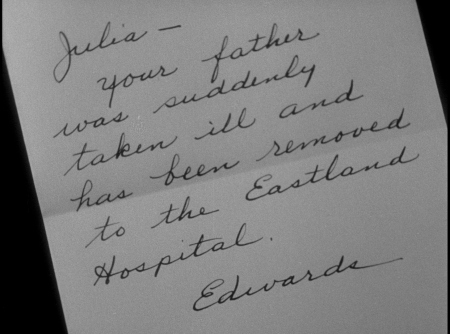 Julia —
your father
was suddenly
taken ill and
has been removed
to the Eastland
Hospital.
Edwards